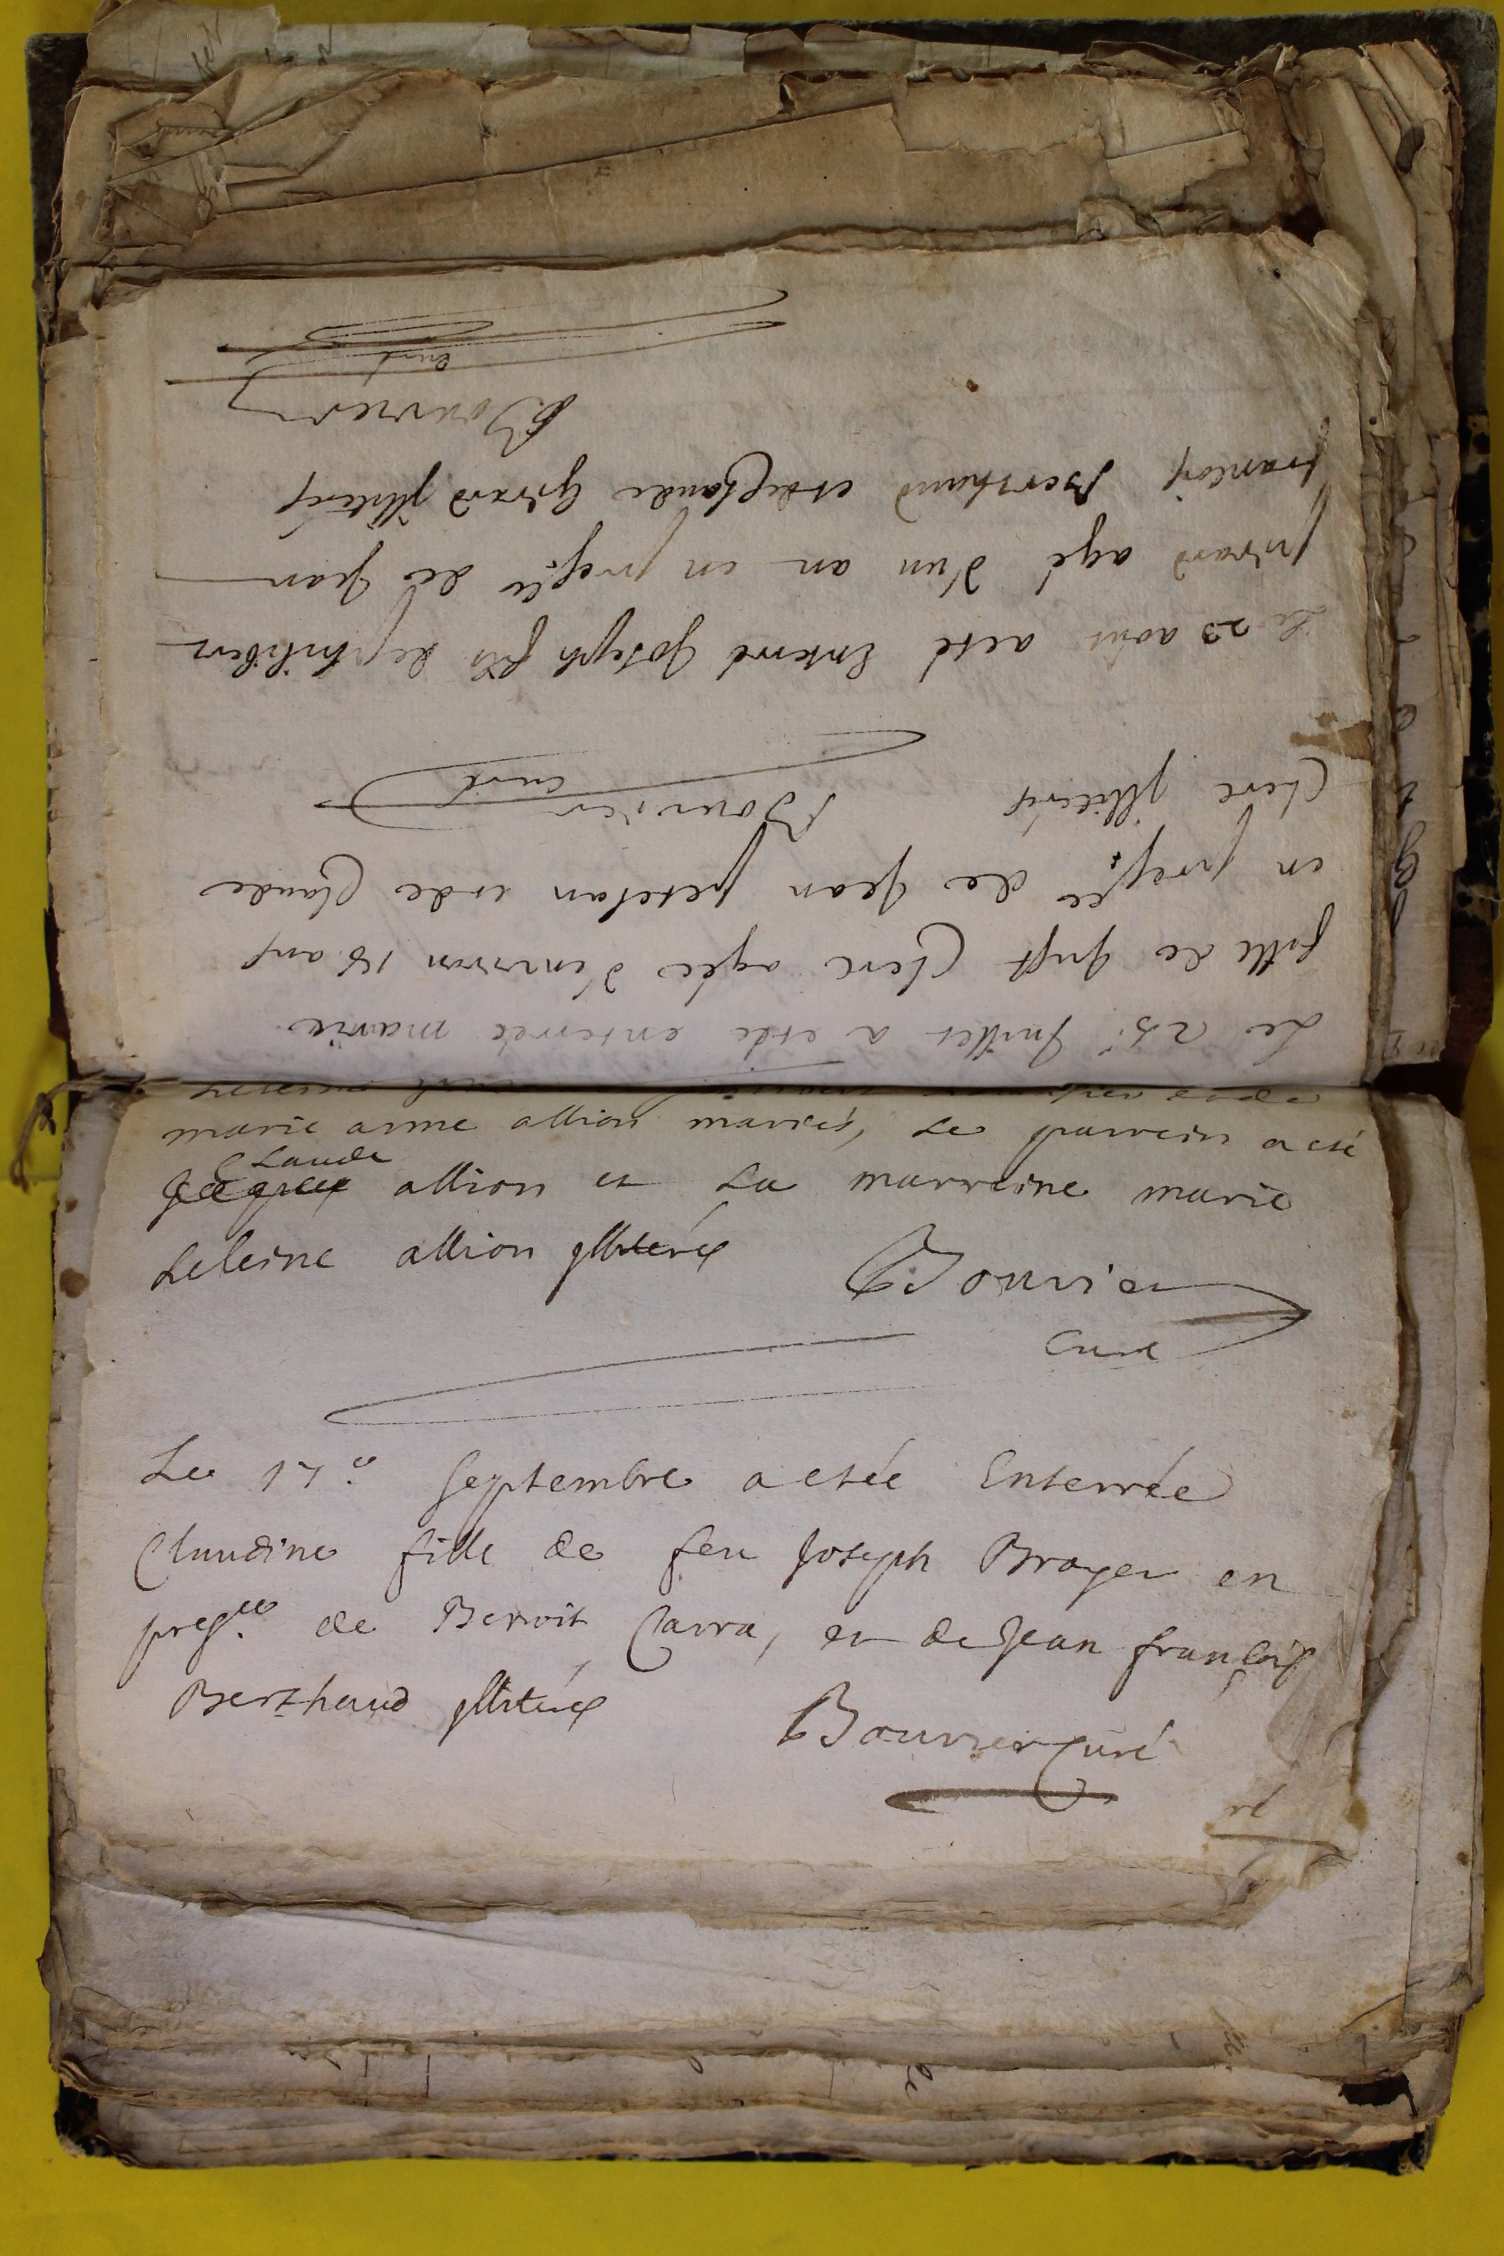 Le 25e Juillet a esté enterrée marie
fille de Just Clerc agée d'environ 18 ans
en presce de Jean petetan et de Claude
Clerc Illiterés Bouvier
curé
Le 23 aout a eté Enterré Joseph fils de philibert
girard agé d'un an en presce de Jean
francois Berthaud et de Claude Girard Illiterés
Bouvier
curé
marie anne allion mariés, Le parrein a eté
Claude
allion et La marreine marie
heleine allion Illiterés Bouvier
Curé
Le 17e Septembre a etée Enterrée
Claudine fille de feu Joseph Broyer en
presce de Benoit Carra, et de Jean francois
Berthaud Illiterés Bouvier Curé